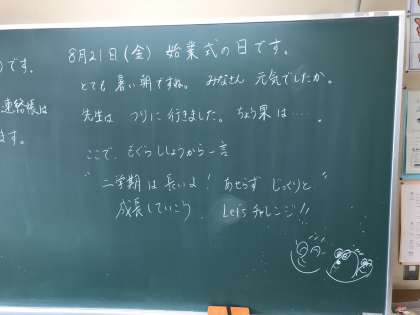 8月21日(金) 始業式の日です。
とても暑い朝ですね。みなさん 元気でしたか。
先生は つりに行きました。ちょう果は……。
ここで、もぐらししょうから一言
"二学期は長いよ! あせらず じっくりと
成長していこう Let'sチャレンジ!!
)です。
連絡帳は
ます。